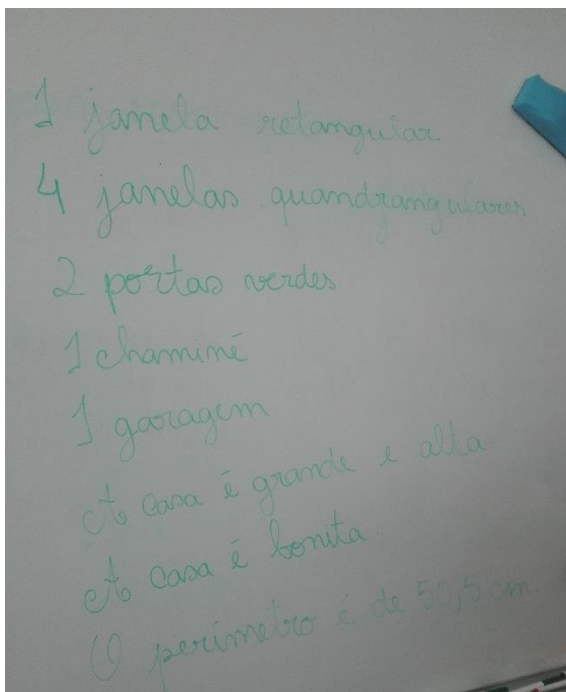 1 janela retangular
4 janelas quandrangulares
2 portas verdes
1 chaminé
1 garagem
A casa é grande e alta
A casa é bonita
O perímetro é de 50,5 cm